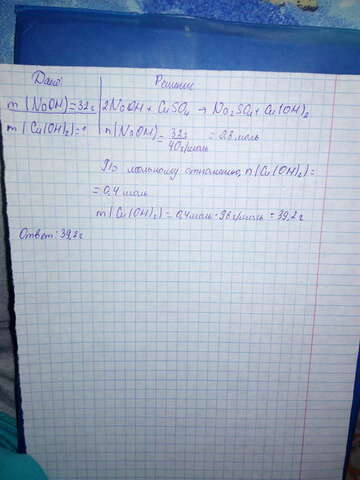 Дано:
Решение
m(NaOH)=32г
2NaOH + CuSO4 → Na2SO4 + Cu(OH)2
m(Cu(OH)2)=?
n(NaOH)= 32г / 40г/моль = 0,8 моль
По мольному отношению, n(Cu(OH)2)=
= 0,4 моль
m(Cu(OH)2)= 0,4моль · 98г/моль = 39,2г
Ответ: 39,2г